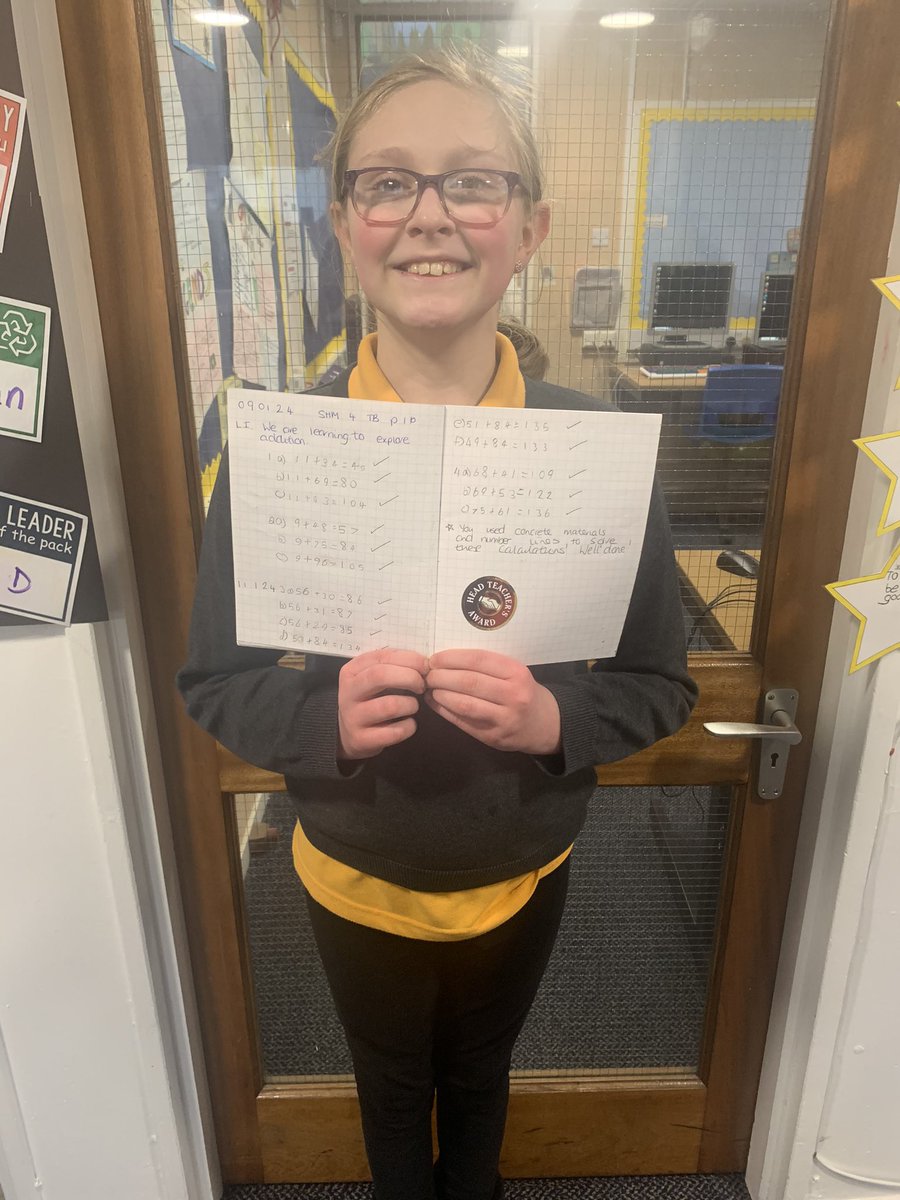 LEADER
of the pack
D
09.01.24 SHM 4 TB p 1p
L.I. We are learning to explore
addition.
1 a) 11+34=45
b) 11+69=80
c) 11+93=104
2a) 9+48=57
b) 9+75=84
c) 9+96=105
11.1.24 3a) 56+30=86
b) 56+31=87
c) 56+29=85
d) 50+84=134
e) 51+84=135
f) 49+84=133
4a) 68+41=109
b) 69+53=122
c) 75+61=136
You used concrete materials
and number lines to solve
these calculations! Well done
HEAD TEACHER'S
AWARD
To
be